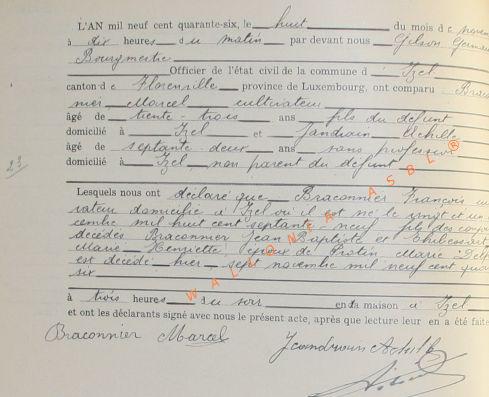 L'AN mil neuf cent quarante-six, le huit du mois de novem
à dix heures du matin par devant nous Gilson Germain
Bourgmestre
Officier de l'état civil de la commune d' Izel
canton d e Florenville province de Luxembourg, ont comparu Bracon
nier Marcel cultivateur
âgé de trente-trois ans fils du défunt
domicilié à Izel et Jandrain Achille
âgé de septante-deux ans sans profession
domicilié à Izel non parent du défunt
23
Lesquels nous ont déclaré que Braconnier François
vateur domicilié à Izel où il est né le vingt et un
cembre mil huit cent septante-neuf fils des conjoi
décédés Braconnier Jean Baptiste et
Marie Henriette époux de Marie
est décédé hier sept novembre mil neuf cent quar
six
à trois heures du soir en sa maison à Izel
et ont les déclarants signé avec nous le présent acte, après que lecture leur en a été faite
Braconnier Marcel
Achille
WALLONICA ASBL ®